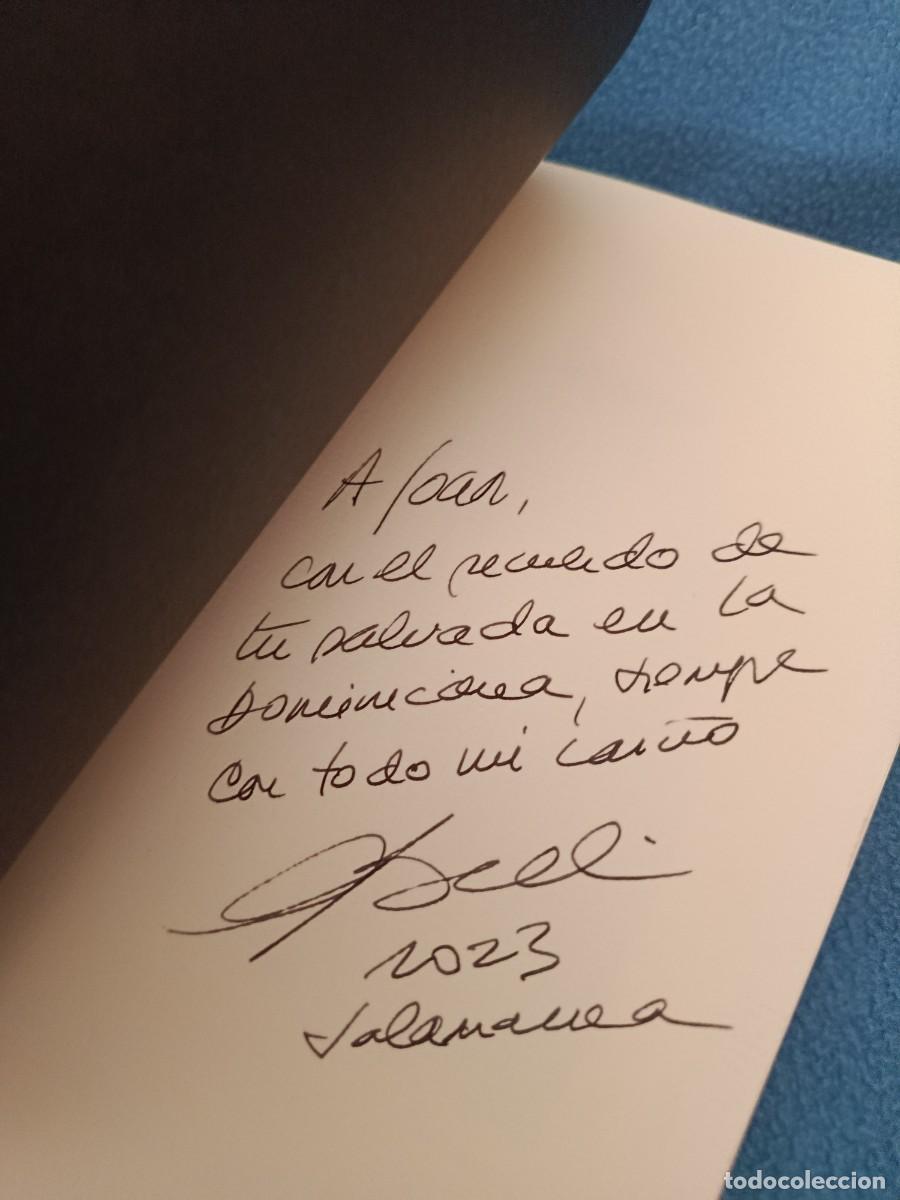 A Joan,
con el recuerdo de
tu salvada en la
Dominicana, siempre
con todo mi cariño
2023
Salamanca
todocoleccion